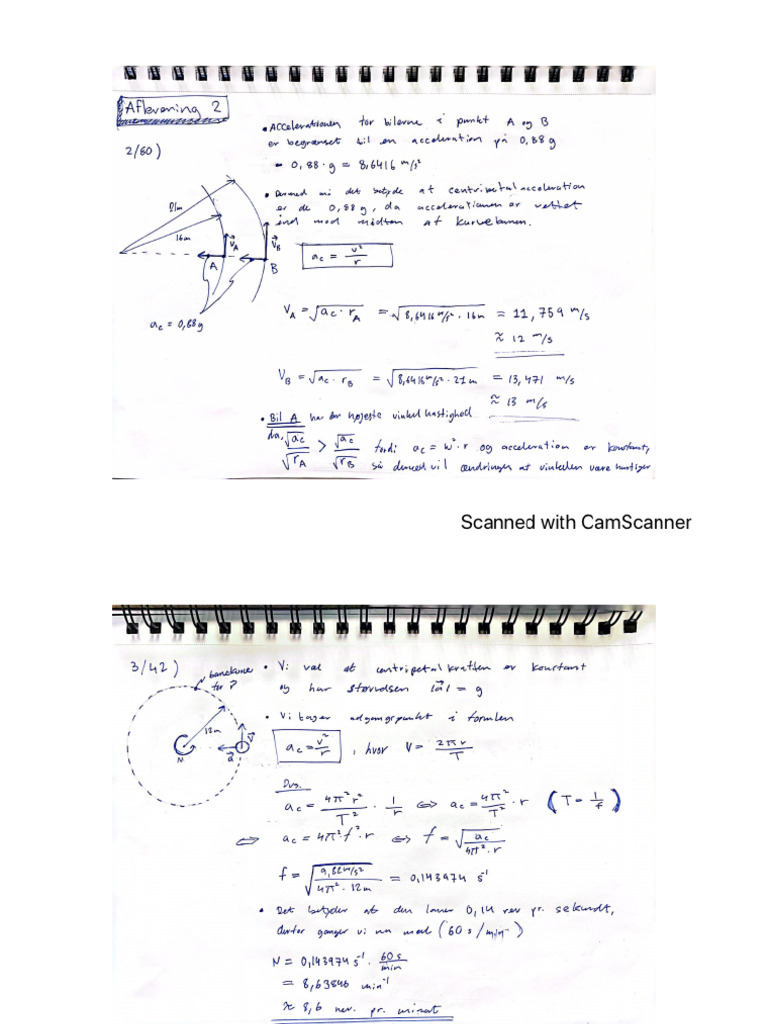 Aflevering 2
2/60)
• Accelerationen for bilerne i punkt A og B
er begrænset til en acceleration på 0,88g
- 0,88 · g = 8,6416 m/s²
• Dermed må det betyde at centripetalacceleration
er de 0,88g, da accelerationen er rettet
ind mod midten af kurvebanen.
21m
16m
v⃗A
v⃗B
A
B
ac = 0,88g
ac = v²/r
VA = √ac · rA = √8,6416 m/s² · 16m = 11,759 m/s
≈ 12 m/s
VB = √ac · rB = √8,6416 m/s² · 21m = 13,471 m/s
≈ 13 m/s
• Bil A har den højeste vinkelhastighed
da, √ac/√rA > √ac/√rB fordi ac = w² · r og acceleration er konstant,
så dermed vil ændringen af vinkelen være hurtiger
Scanned with CamScanner
3/42)
banekurve
for P
12m
N
a⃗
v⃗
• Vi ved at centripetalkraften er konstant
og har størrelsen |a⃗| = g
• Vi tager udgangspunkt i formlen
ac = v²/r , hvor V = 2πr/T
Dvs.
ac = 4π²r²/T² · 1/r ⇔ ac = 4π²/T² · r (T = 1/f)
⇔ ac = 4π² · f² · r ⇔ f = √ac/4π² · r
f = √9,82 m/s²/4π² · 12m = 0,143974 s⁻¹
• Det betyder at den laver 0,14 rev pr. sekundt,
derfor ganger vi nu med (60 s/min)
N = 0,143974 s⁻¹ · 60 s/min
= 8,63846 min⁻¹
≈ 8,6 rev. pr. minut